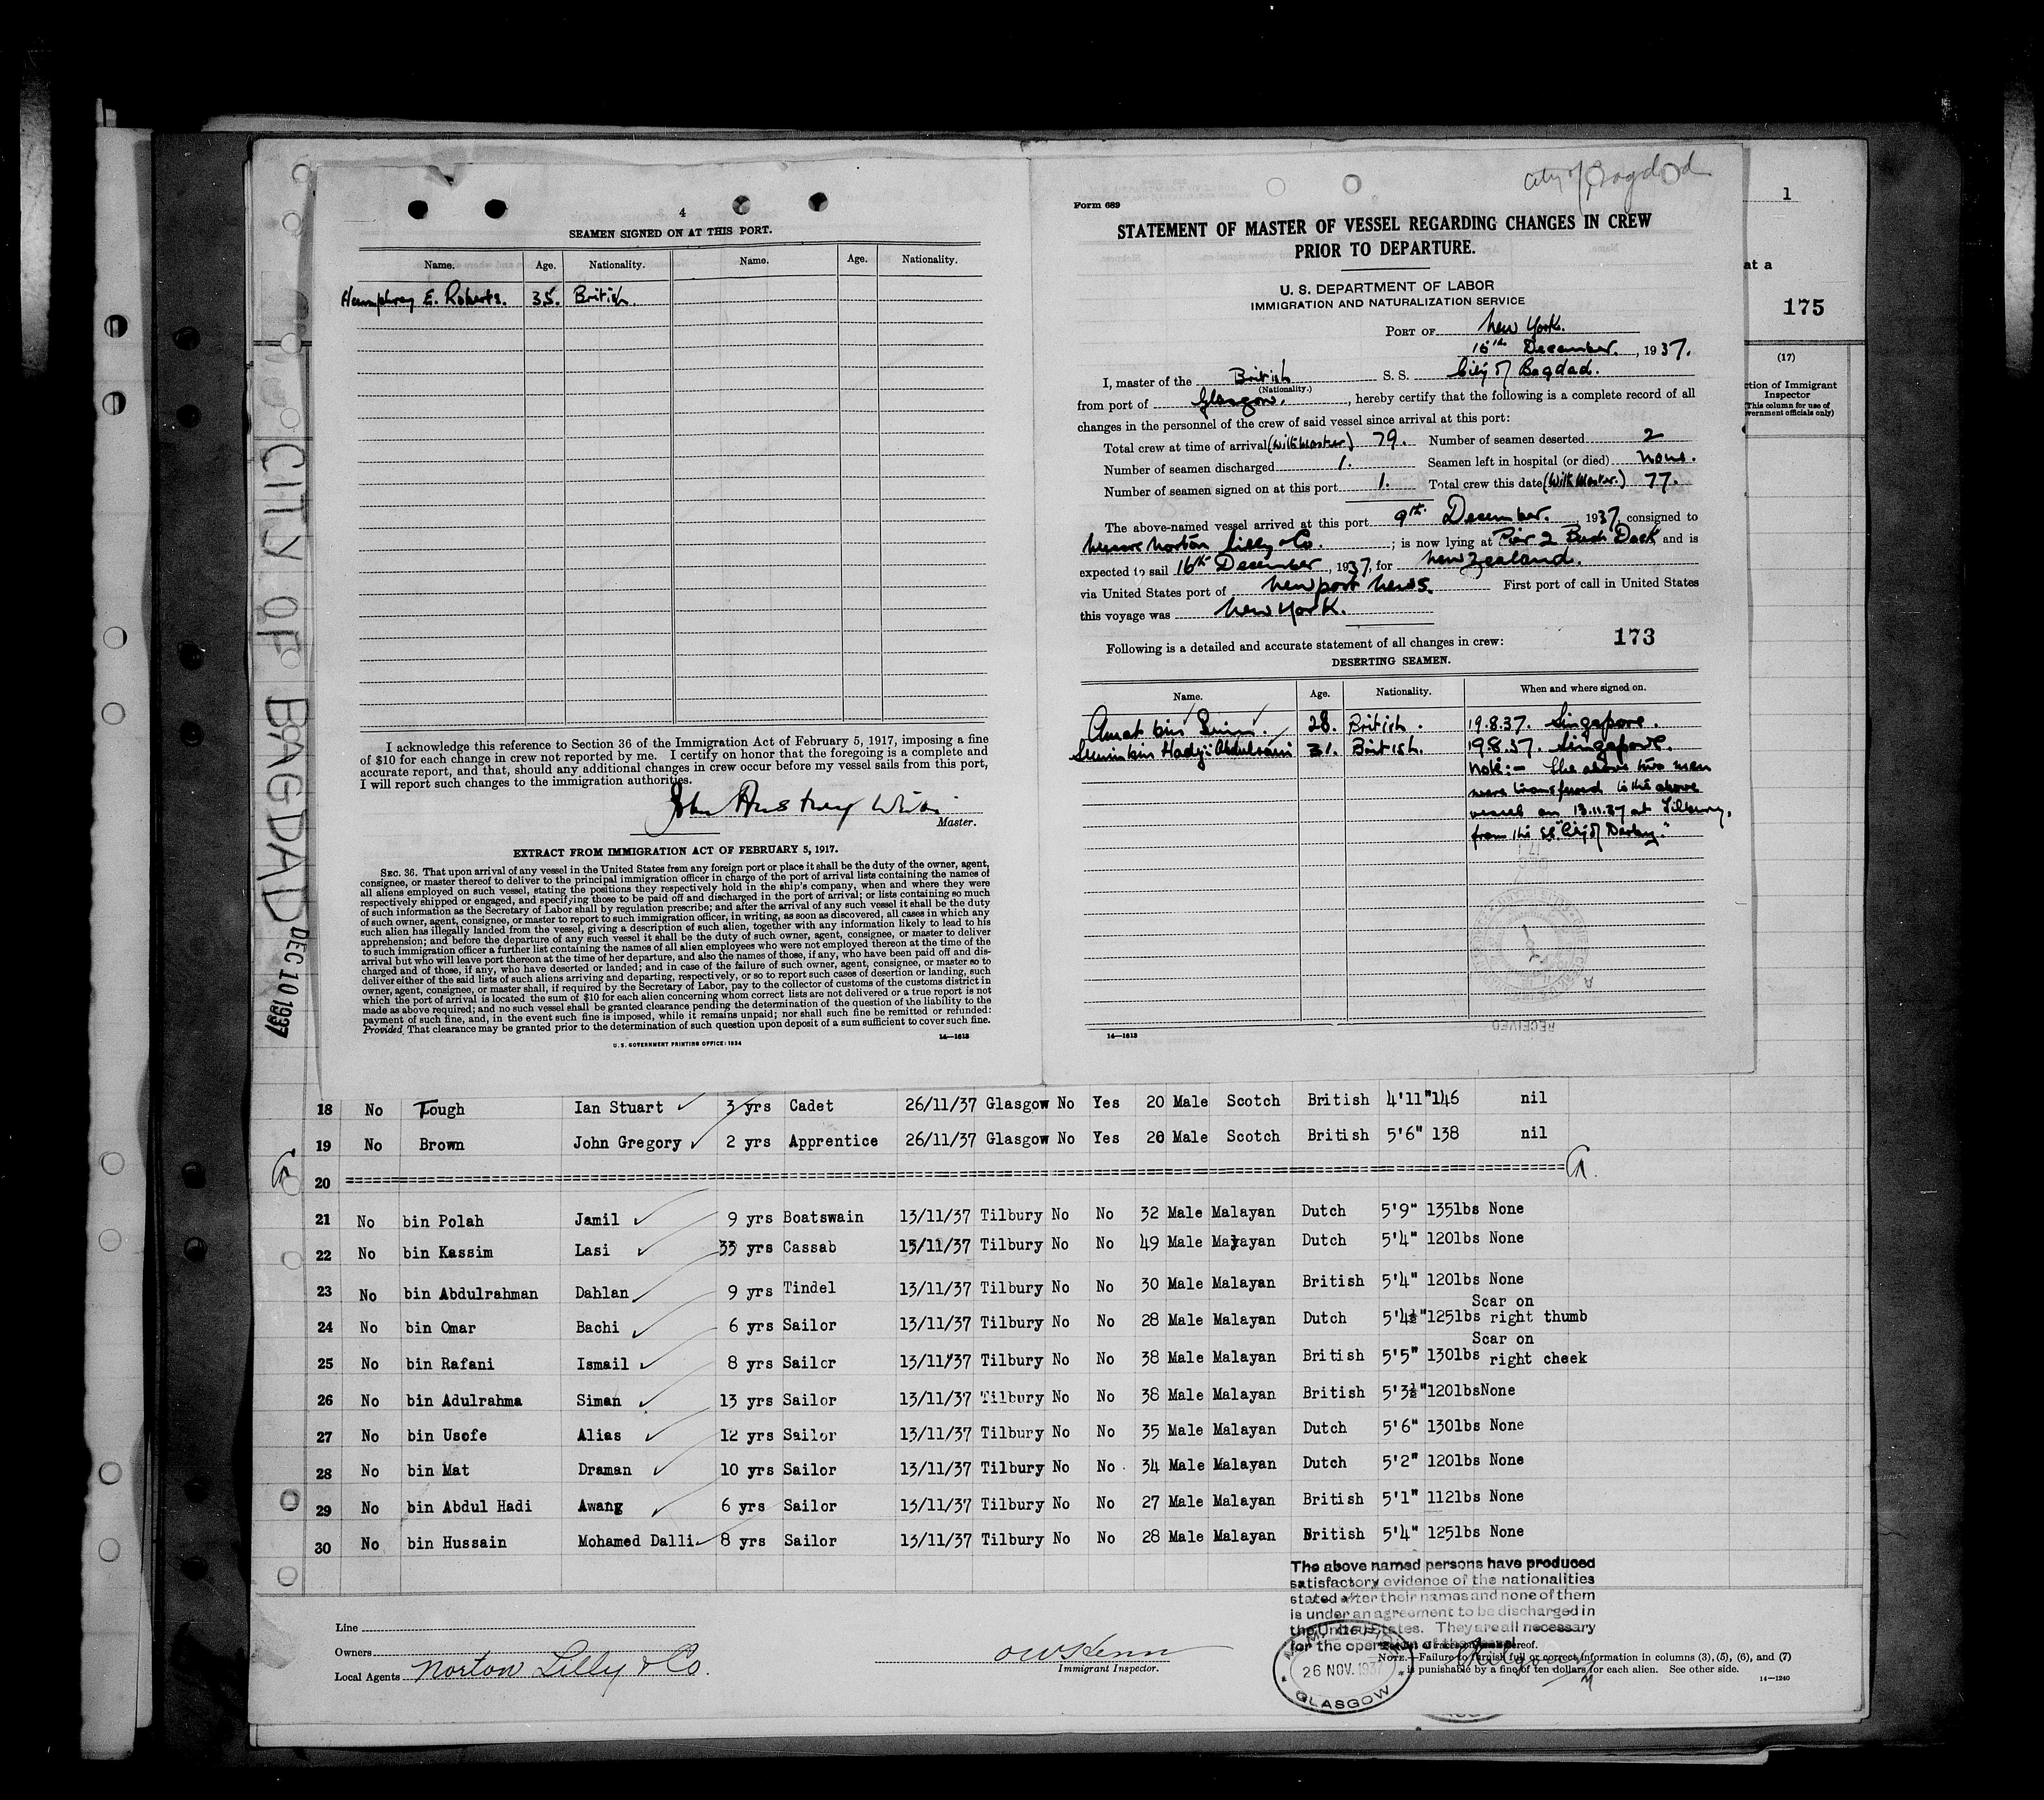 CITY OF BAGDAD DEC 10 1937
4
SEAMEN SIGNED ON AT THIS PORT.
Name. Age. Nationality. Name. Age. Nationality.
Humphrey E. Roberts. 35. British.
I acknowledge this reference to Section 36 of the Immigration Act of February 5, 1917, imposing a fine
of $10 for each change in crew not reported by me. I certify on honor that the foregoing is a complete and
accurate report, and that, should any additional changes in crew occur before my vessel sails from this port,
I will report such changes to the immigration authorities.
John
Master.
EXTRACT FROM IMMIGRATION ACT OF FEBRUARY 5, 1917.
SEC. 36. That upon arrival of any vessel in the United States from any foreign port or place it shall be the duty of the owner, agent,
consignee, or master thereof to deliver to the principal immigration officer in charge of the port of arrival lists containing the names of
all aliens employed on such vessel, stating the positions they respectively hold in the ship's company, when and where they were
respectively shipped or engaged, and specifying those to be paid off and discharged in the port of arrival; or lists containing so much
of such information as the Secretary of Labor shall by regulation prescribe; and after the arrival of any such vessel it shall be the duty
of such owner, agent, consignee, or master to report to such immigration officer, in writing, as soon as discovered, all cases in which any
such alien has illegally landed from the vessel, giving a description of such alien, together with any information likely to lead to his
apprehension; and before the departure of any such vessel it shall be the duty of such owner, agent, consignee, or master to deliver
to such immigration officer a further list containing the names of all alien employees who were not employed thereon at the time of the
arrival but who will leave port thereon at the time of her departure, and also the names of those, if any, who have been paid off and dis-
charged and of those, if any, who have deserted or landed; and in case of the failure of such owner, agent, consignee, or master so to
deliver either of the said lists of such aliens arriving and departing, respectively, or so to report such cases of desertion or landing, such
owner, agent, consignee, or master shall, if required by the Secretary of Labor, pay to the collector of customs of the customs district in
which the port of arrival is located the sum of $10 for each alien concerning whom correct lists are not delivered or a true report is not
made as above required; and no such vessel shall be granted clearance pending the determination of the question of the liability to the
payment of such fine, and, in the event such fine is imposed, while it remains unpaid; nor shall such fine be remitted or refunded:
Provided, That clearance may be granted prior to the determination of such question upon deposit of a sum sufficient to cover such fine.
U. S. GOVERNMENT PRINTING OFFICE: 1934 14—1613
City of Bagdad
Form 689
STATEMENT OF MASTER OF VESSEL REGARDING CHANGES IN CREW
PRIOR TO DEPARTURE.
U. S. DEPARTMENT OF LABOR
IMMIGRATION AND NATURALIZATION SERVICE
PORT OF New York.
15th December. , 1937.
I, master of the British S. S. City of Bagdad.
(Nationality.)
from port of Glasgow. , hereby certify that the following is a complete record of all
changes in the personnel of the crew of said vessel since arrival at this port:
Total crew at time of arrival (with Master) 79. Number of seamen deserted 2
Number of seamen discharged 1. Seamen left in hospital (or died) none.
Number of seamen signed on at this port 1. Total crew this date (with Master.) 77.
The above-named vessel arrived at this port 9th December. 1937, consigned to
Messrs Norton Lilly & Co. ; is now lying at Pier 2 Bush Dock and is
expected to sail 16th December , 1937, for New Zealand.
via United States port of Newport News. First port of call in United States
this voyage was New York.
Following is a detailed and accurate statement of all changes in crew: 173
DESERTING SEAMEN.
Name. Age. Nationality. When and where signed on.
Amat bin 28. British. 19.8.37. Singapore.
bin Hadji Abdulsani 31. British. 19.8.37. Singapore.
Note:- The above two men
were transferred to the above
vessel on 13.11.37 at Tilbury,
from the SS. "City of Derby."
RECEIVED
14—1613
1
at a
175
(17)
ction of Immigrant
Inspector
(This column for use of
vernment officials only)
18 No Tough Ian Stuart 3 yrs Cadet 26/11/37 Glasgow No Yes 20 Male Scotch British 4'11" 146 nil
19 No Brown John Gregory 2 yrs Apprentice 26/11/37 Glasgow No Yes 20 Male Scotch British 5'6" 138 nil
20
21 No bin Polah Jamil 9 yrs Boatswain 13/11/37 Tilbury No No 32 Male Malayan Dutch 5'9" 135lbs None
22 No bin Kassim Lasi 33 yrs Cassab 13/11/37 Tilbury No No 49 Male Mayayan Dutch 5'4" 120lbs None
23 No bin Abdulrahman Dahlan 9 yrs Tindel 13/11/37 Tilbury No No 30 Male Malayan British 5'4" 120lbs None
24 No bin Omar Bachi 6 yrs Sailor 13/11/37 Tilbury No No 28 Male Malayan Dutch 5'4½" 125lbs Scar on right thumb
25 No bin Rafani Ismail 8 yrs Sailor 13/11/37 Tilbury No No 38 Male Malayan British 5'5" 130lbs Scar on right cheek
26 No bin Adulrahma Siman 13 yrs Sailor 13/11/37 Tilbury No No 38 Male Malayan British 5'3½" 120lbs None
27 No bin Usofe Alias 12 yrs Sailor 13/11/37 Tilbury No No 35 Male Malayan Dutch 5'6" 130lbs None
28 No bin Mat Draman 10 yrs Sailor 13/11/37 Tilbury No No 34 Male Malayan Dutch 5'2" 120lbs None
29 No bin Abdul Hadi Awang 6 yrs Sailor 13/11/37 Tilbury No No 27 Male Malayan British 5'1" 112lbs None
30 No bin Hussain Mohamed Dalli 8 yrs Sailor 13/11/37 Tilbury No No 28 Male Malayan British 5'4" 125lbs None
The above named persons have produced
satisfactory evidence of the nationalities
stated after their names and none of them
is under an agreement to be discharged in
the United States. They are all necessary
for the
Line
Owners
Local Agents Norton Lilly & Co.
Immigrant Inspector.
26 NOV. 1937
GLASGOW
NOTE.—Failure to furnish full or correct information in columns (3), (5), (6), and (7)
is punishable by a fine of ten dollars for each alien. See other side.
14—1240